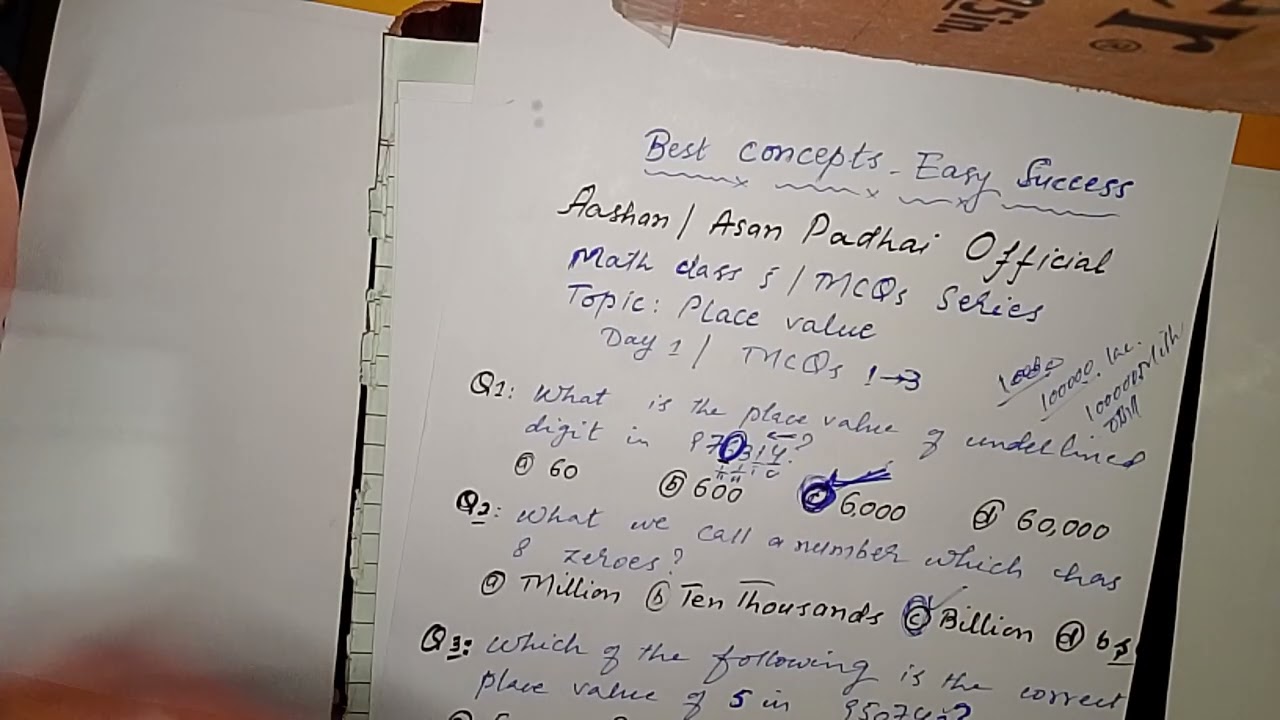 25in.
®
Best concepts - Easy Success
Aashan / Asan Padhai Official
Math class 5 / MCQs Series
Topic: Place value
Day 1 / MCQs 1→3
100000. lac.
Q1: What is the place value of underlined
digit in 976314?
(a) 60 (b) 600 (c) 6,000 (d) 60,000
Q2: What we call a number which has
8 zeroes?
(a) Million (b) Ten Thousands (c) Billion (d)
Q3: Which of the following is the correct
place value of 5 in